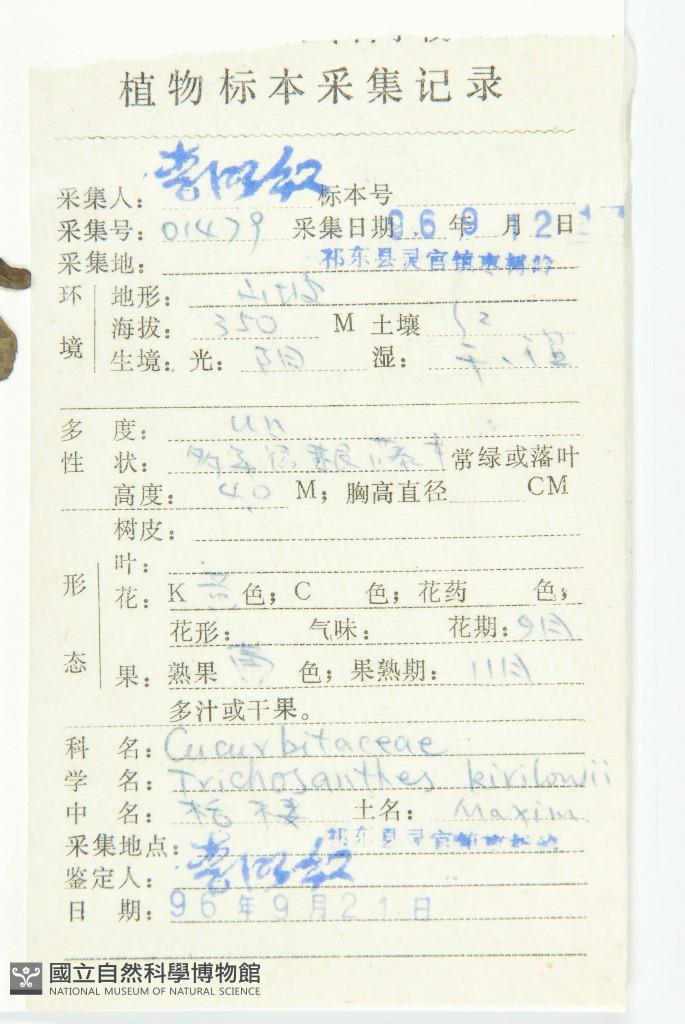 植物标本采集记录
采集人： 标本号
采集号：01479 采集日期96年9月12日
采集地：祁东县灵官镇枣树岭
环境 地形：
海拔：350 M 土壤
生境：光：阳 湿：
多度：un
性状： 常绿或落叶
高度：4.0 M；胸高直径 CM
树皮：
形态 叶：
花：K 色；C 色；花药 色；
花形： 气味： 花期：9月
果：熟果黄色；果熟期：11月
多汁或干果。
科名：Cucurbitaceae
学名：Trichosanthes kirilowii
中名：栝楼 土名：Maxim.
采集地点：祁东县灵官镇枣树岭
鉴定人：
日期：96年9月21日
國立自然科學博物館
NATIONAL MUSEUM OF NATURAL SCIENCE